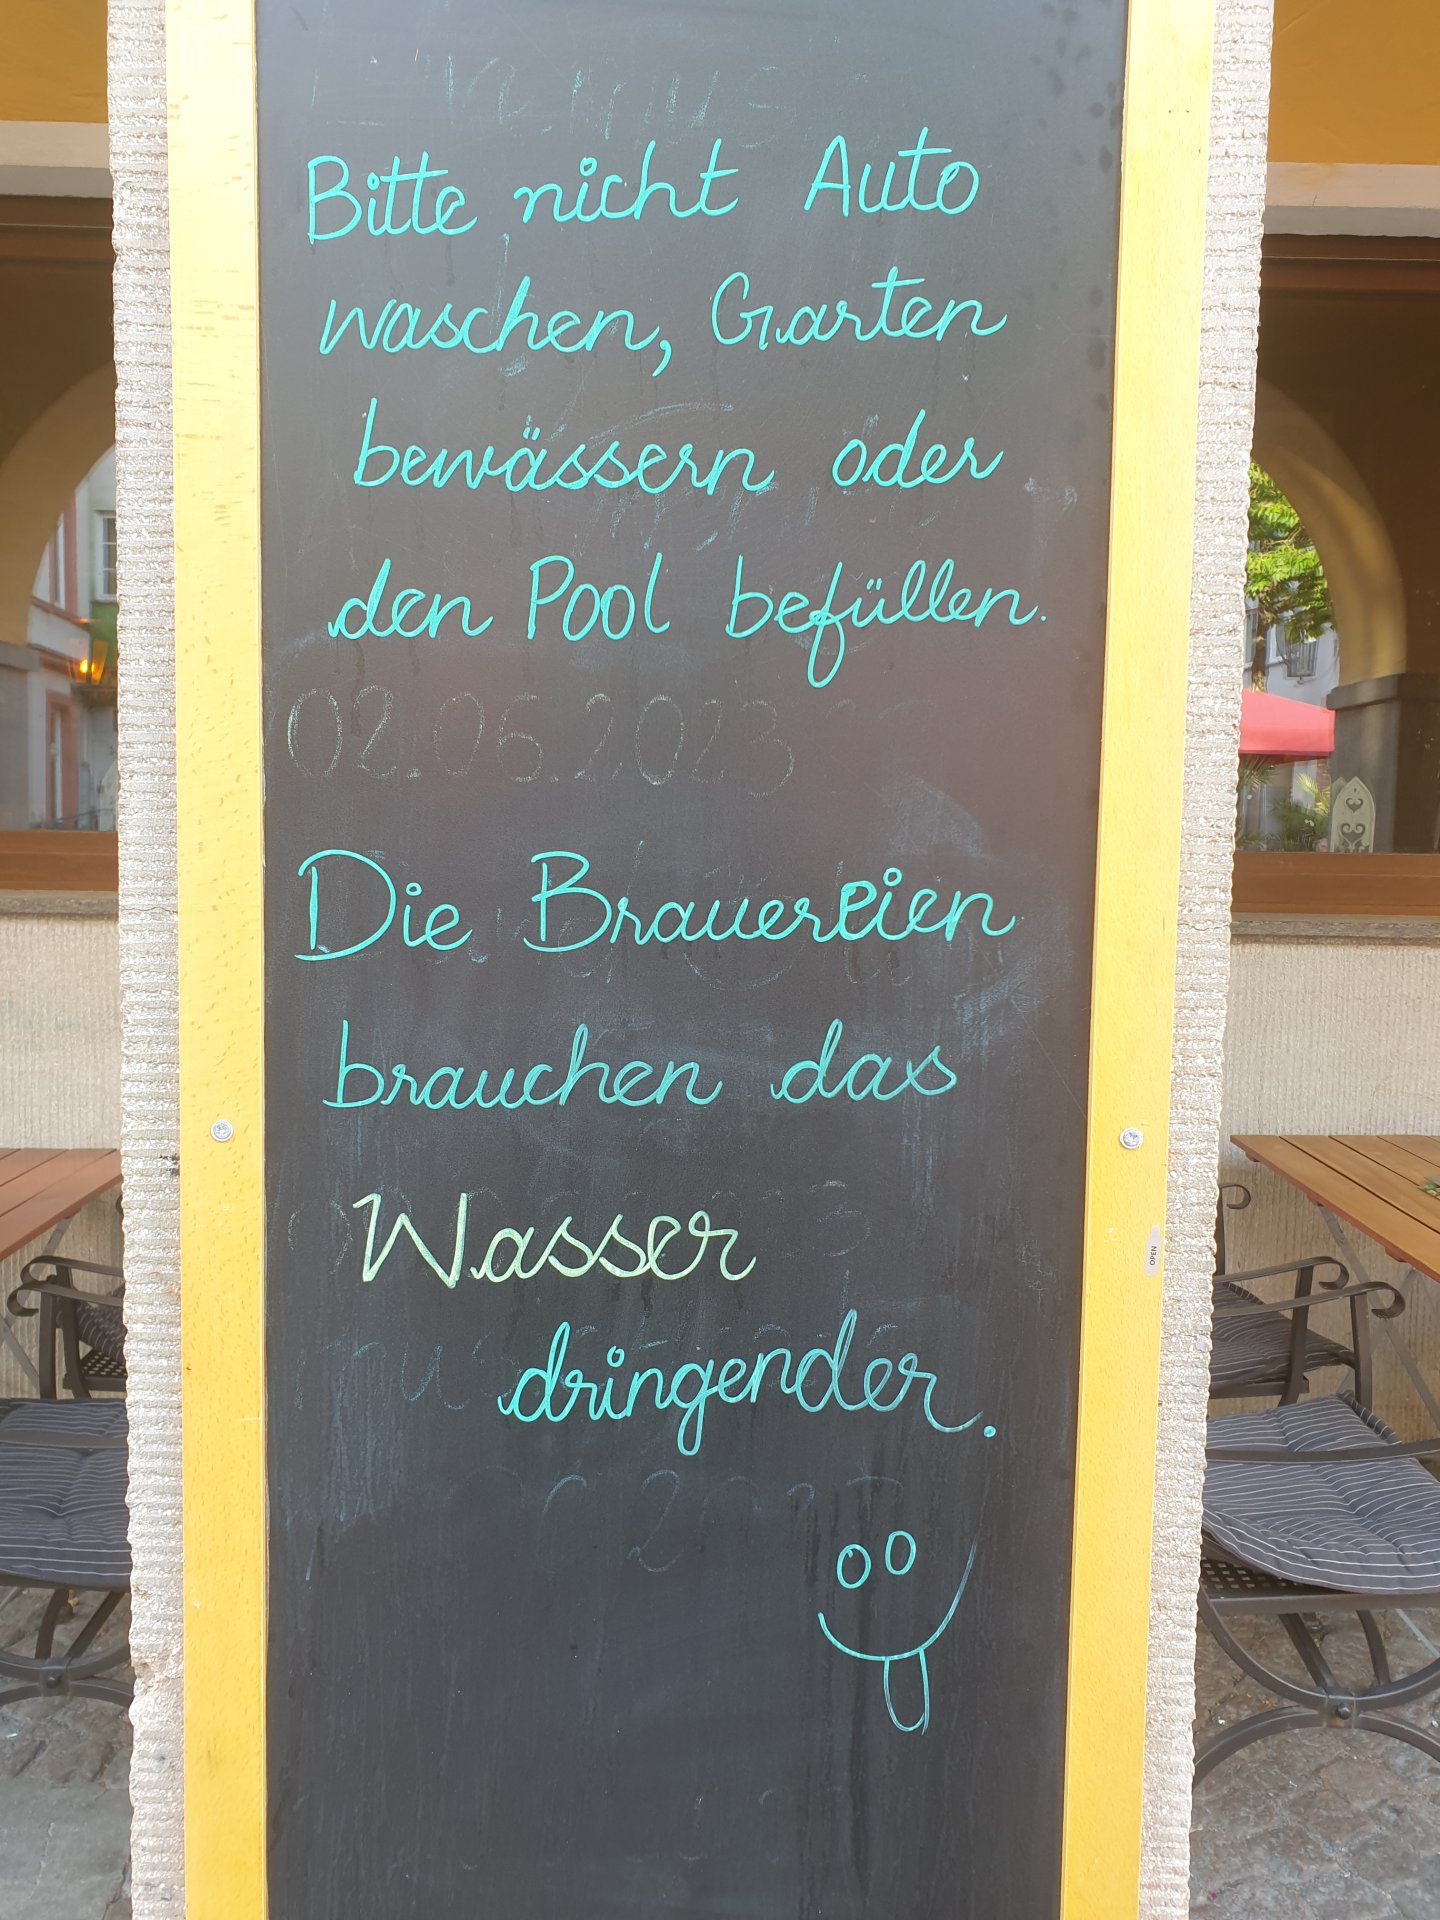 Bitte nicht Auto
waschen, Garten
bewässern oder
den Pool befüllen.
02.05.2023
Die Brauereien
brauchen das
Wasser
dringender.
OPEN